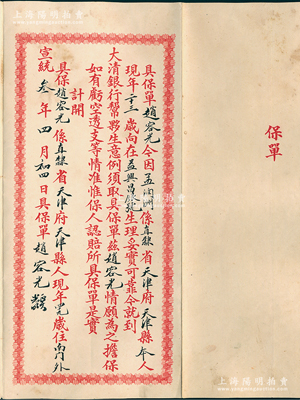 保單
具保單趙容光今因孟向洲係直隸省天津府天津縣本人
現年二十三歲向在孟興昌號生理妥實可靠今就到
大清銀行幫夥生意例須取具保單茲趙容光情願為之擔保
如有虧空透支等情准惟保人認賠所具保單是實
計開
具保趙容光係直隸省天津府天津縣人現年 歲住南門外
宣統叁年四月初四日具保單趙容光